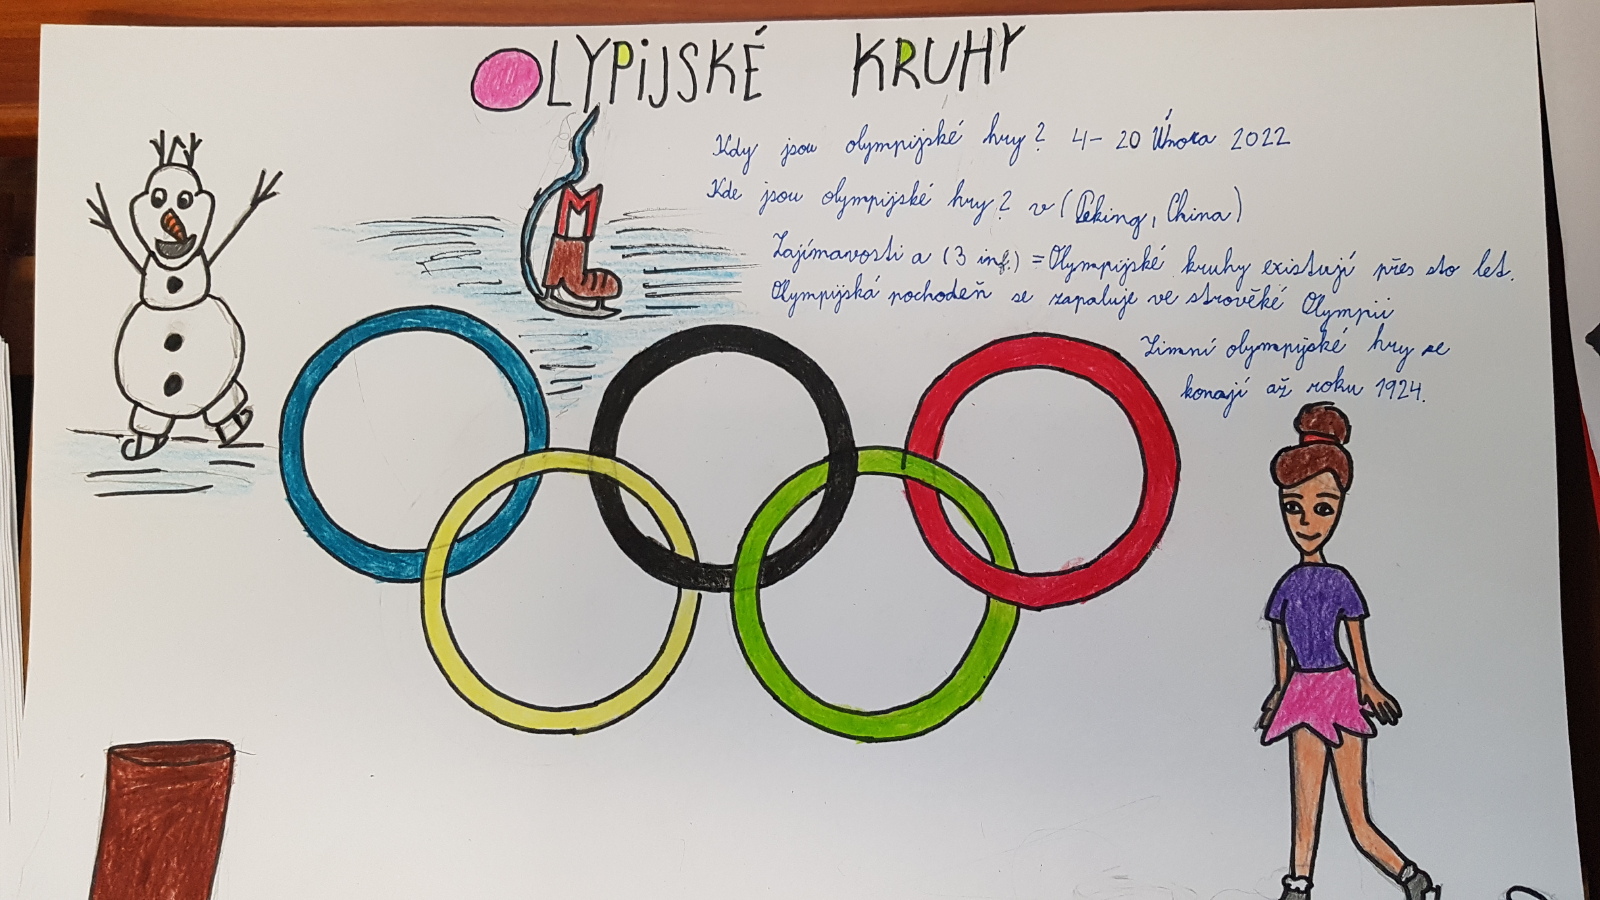 OLYPIJSKÉ KRUHY
Kdy jsou olympijské hry? 4- 20 Února 2022
Kde jsou olympijské hry? v (Peking, China)
Zajímavosti a (3 inf.) = Olympijské kruhy existují přes sto let.
Olympijská pochodeň se zapaluje ve strověké Olympii
Zimní olympijské hry se
konají až roku 1924.